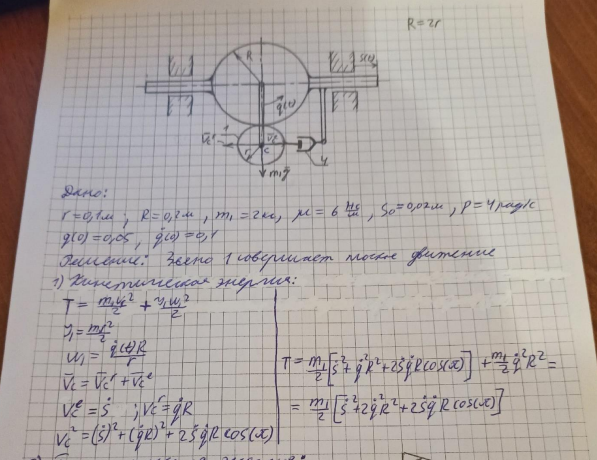 R=2r
S(t)
R
q(t)
V̄cʳ 1 V̄c
r c 4
m₁ḡ
Дано:
r=0,1м; R=0,2м, m₁=2кг, μ=6 Нс/м, S₀=0,02м, p=4рад/с
q(0)=0,05, q̇(0)=0,1
Решение: Звено 1 совершает плоское движение
1) Кинетическая энергия:
T = m₁Vc²/2 + J₁ω₁²/2
J₁ = mr²/2
ω₁ = q̇(t)R/r
V̄c = V̄cʳ + V̄cᵉ
Vcᵉ = ṡ ; Vcʳ = q̇R
Vc² = (ṡ)² + (q̇R)² + 2ṡq̇Rcos(α)
T = m₁/2 [ṡ² + q̇²R² + 2ṡq̇Rcos(α)] + m₁/2 q̇²R² =
= m₁/2 [ṡ² + 2q̇²R² + 2ṡq̇Rcos(α)]